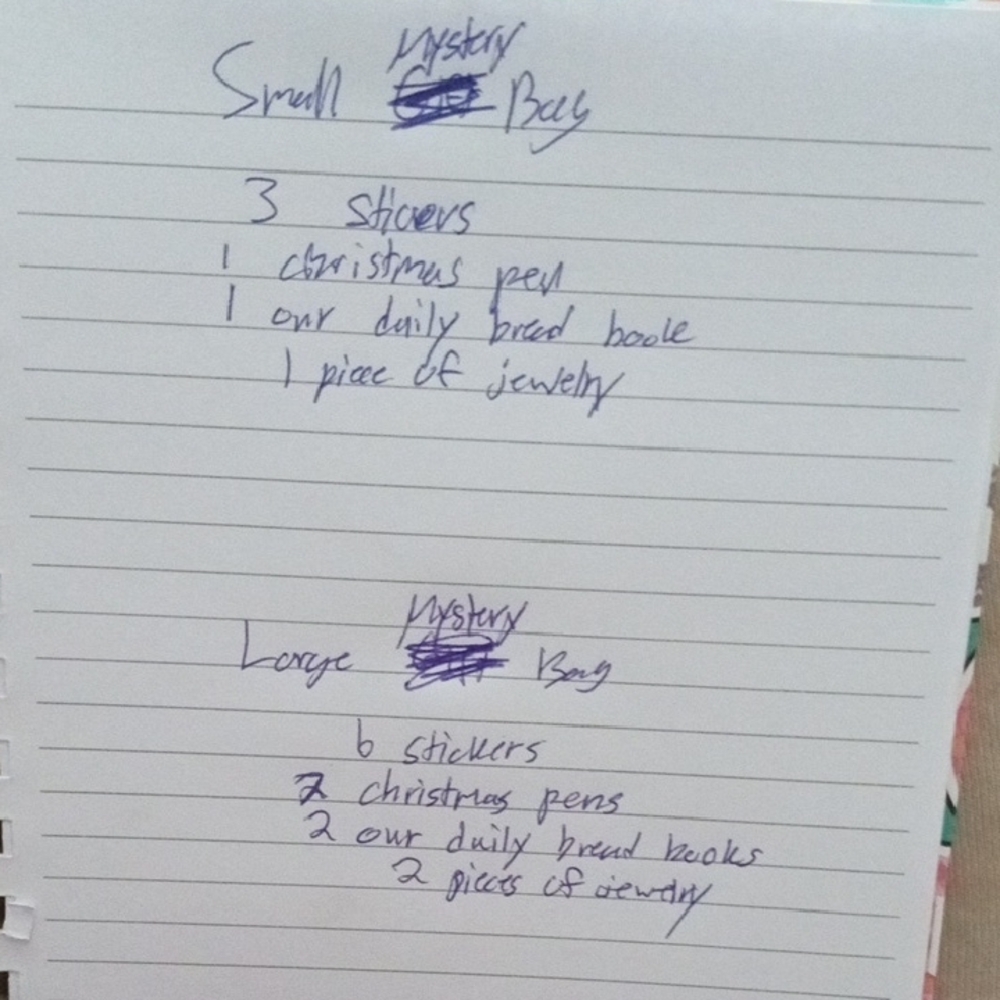 Small Mystery Bag
3 stickers
1 christmas pen
1 our daily bread book
1 piece of jewelry
Large Mystery Bag
6 stickers
2 christmas pens
2 our daily bread books
2 pieces of jewelry